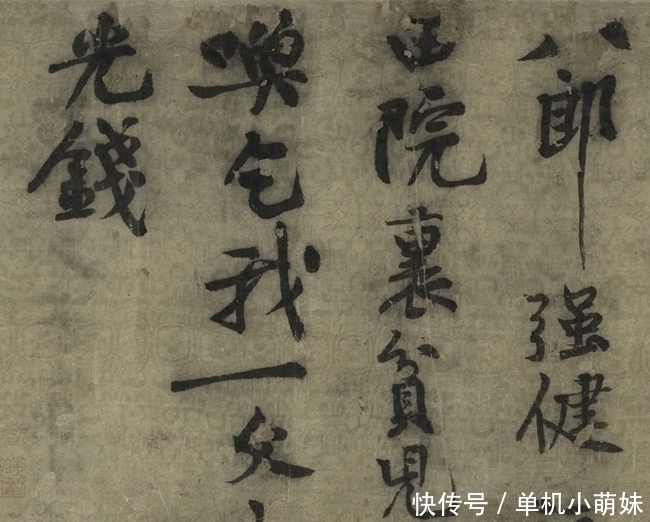 八郎强健
田院裏貧兒
喚乞我一文
光錢
快传号 / 单机小萌妹